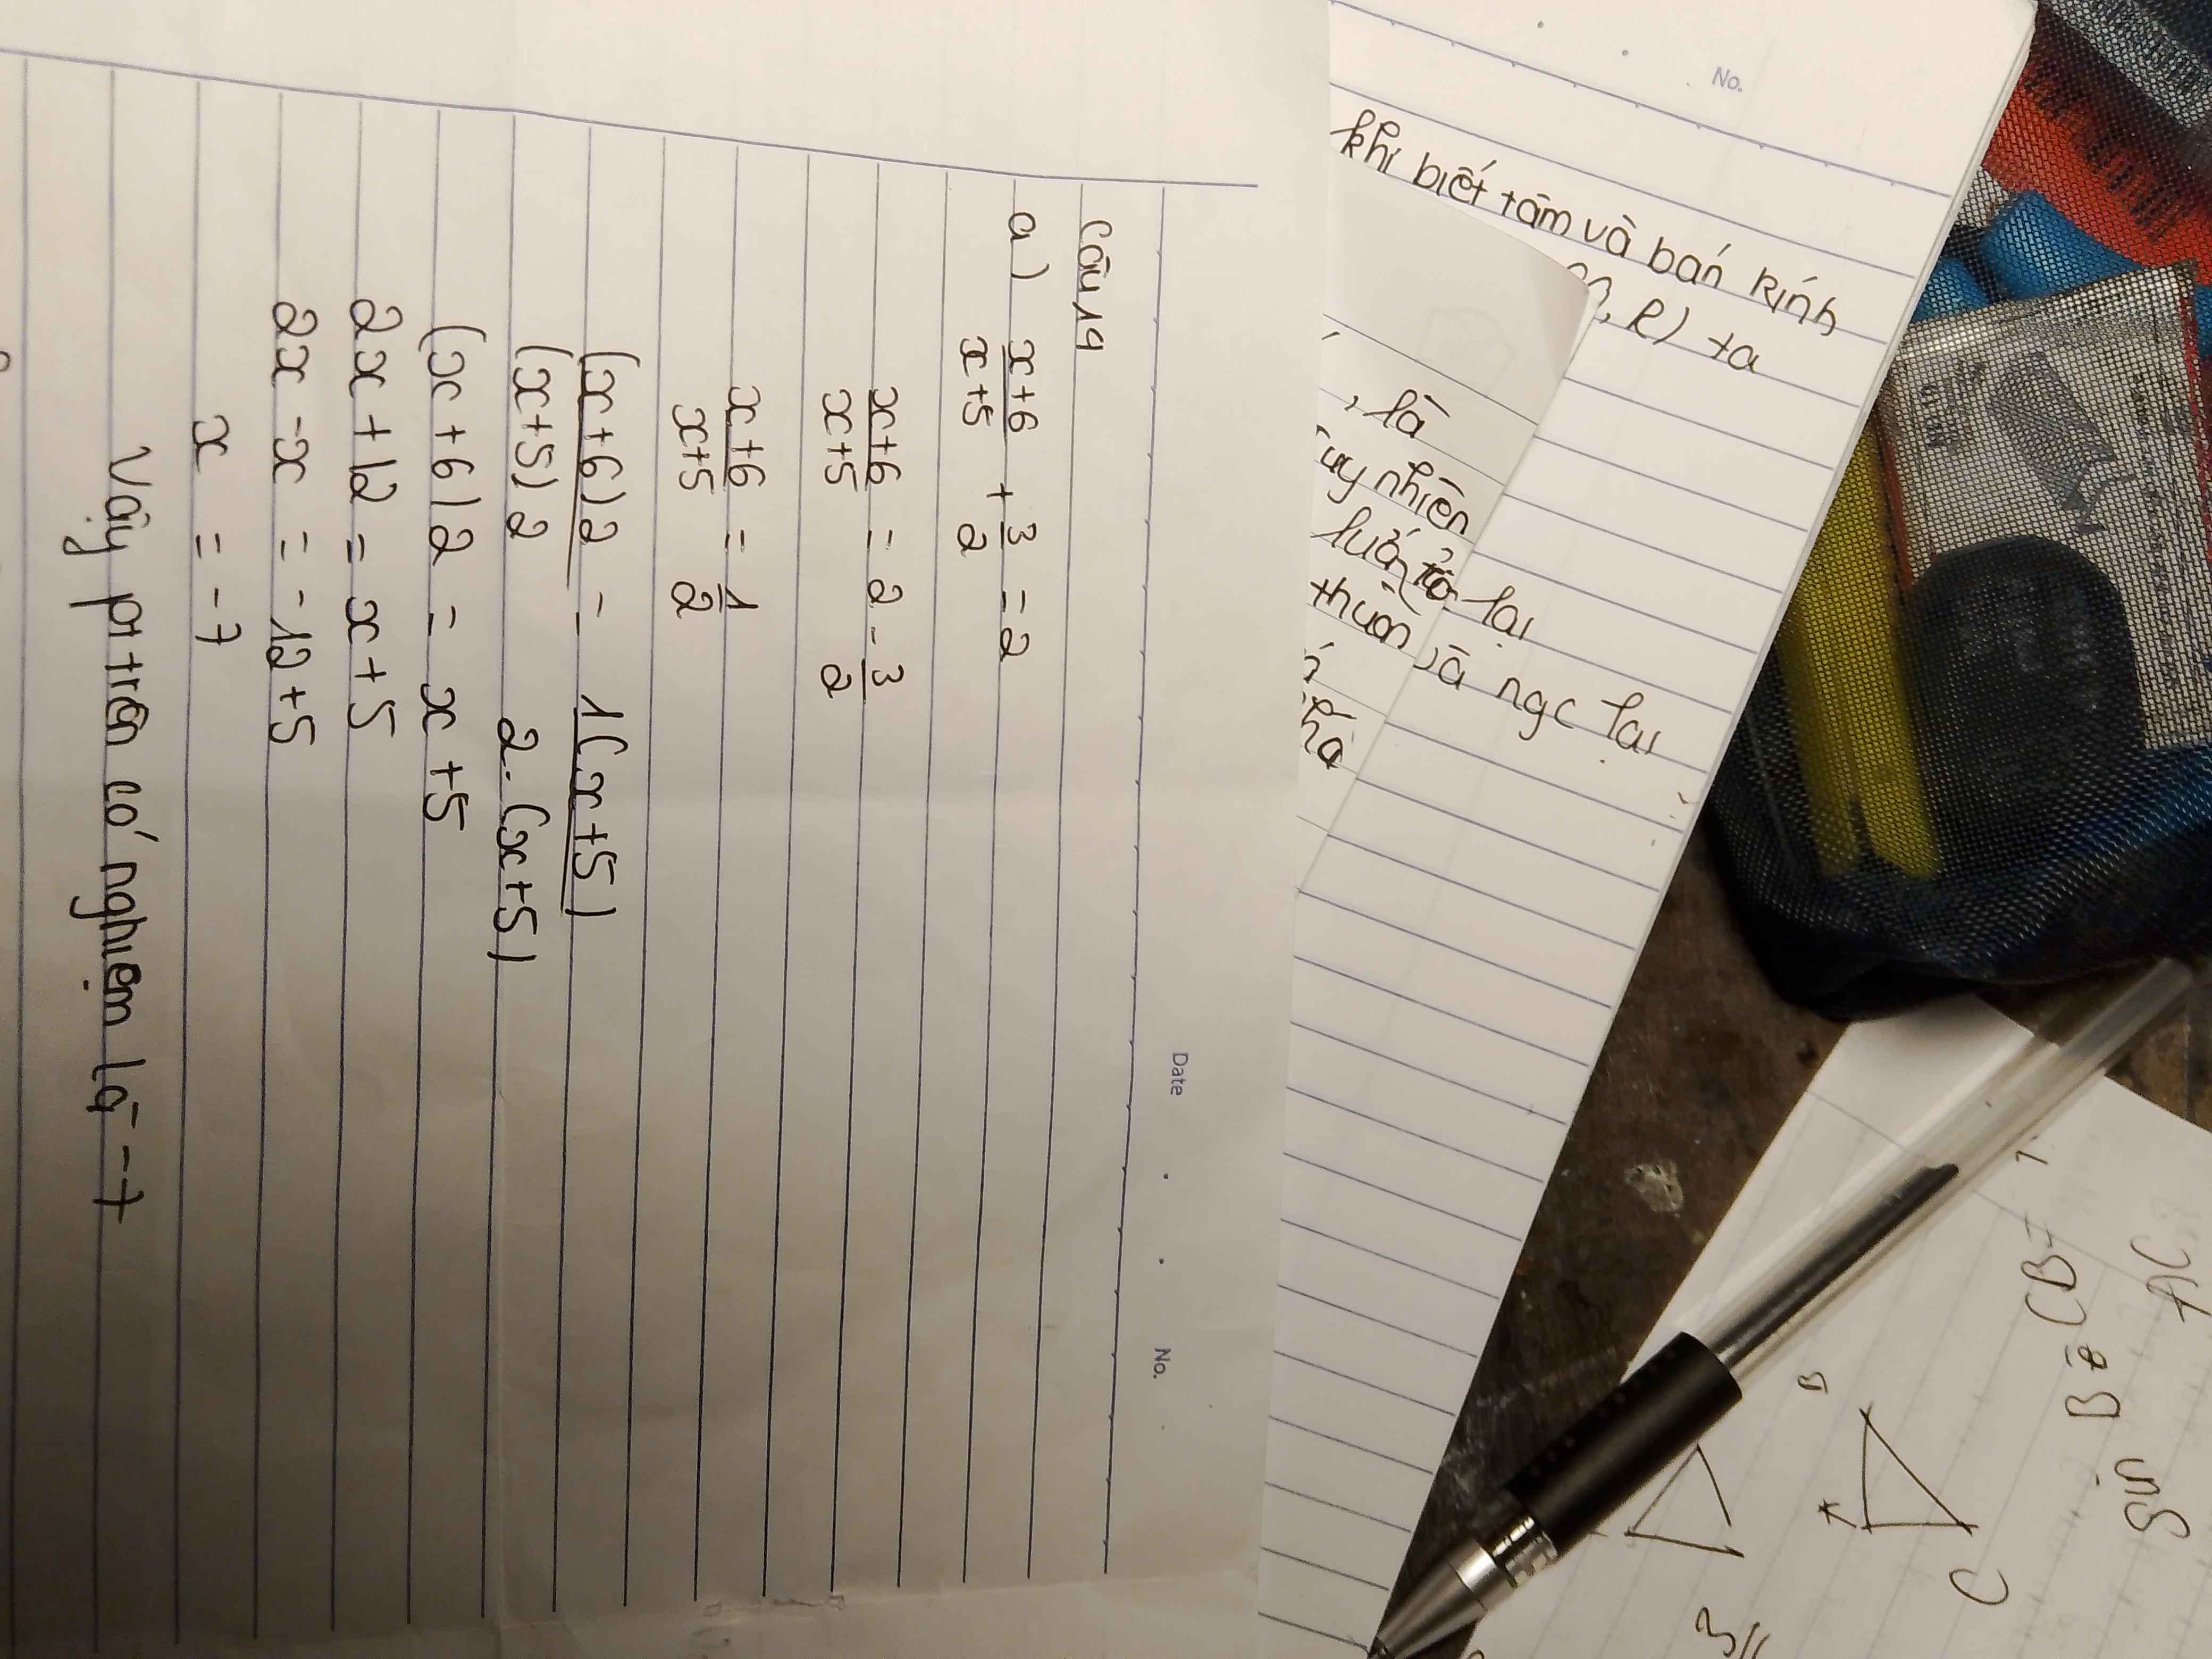 Date . . No.
Câu 19
a) \frac{x+6}{x+5} + \frac{3}{2} = 2
\frac{x+6}{x+5} = 2 - \frac{3}{2}
\frac{x+6}{x+5} = \frac{1}{2}
\frac{(x+6)2}{(x+5)2} = \frac{1(x+5)}{2.(x+5)}
(x+6)2 = x+5
2x+12 = x+5
2x-x = -12+5
x = -7
Vậy pt trên có nghiệm là -7
No.
khi biết tâm và bán kính
, R) ta
, là
uy nhiên
lại
thuôn
à ngc lại
(B=
AC
Bê
sin
B
A
C
3